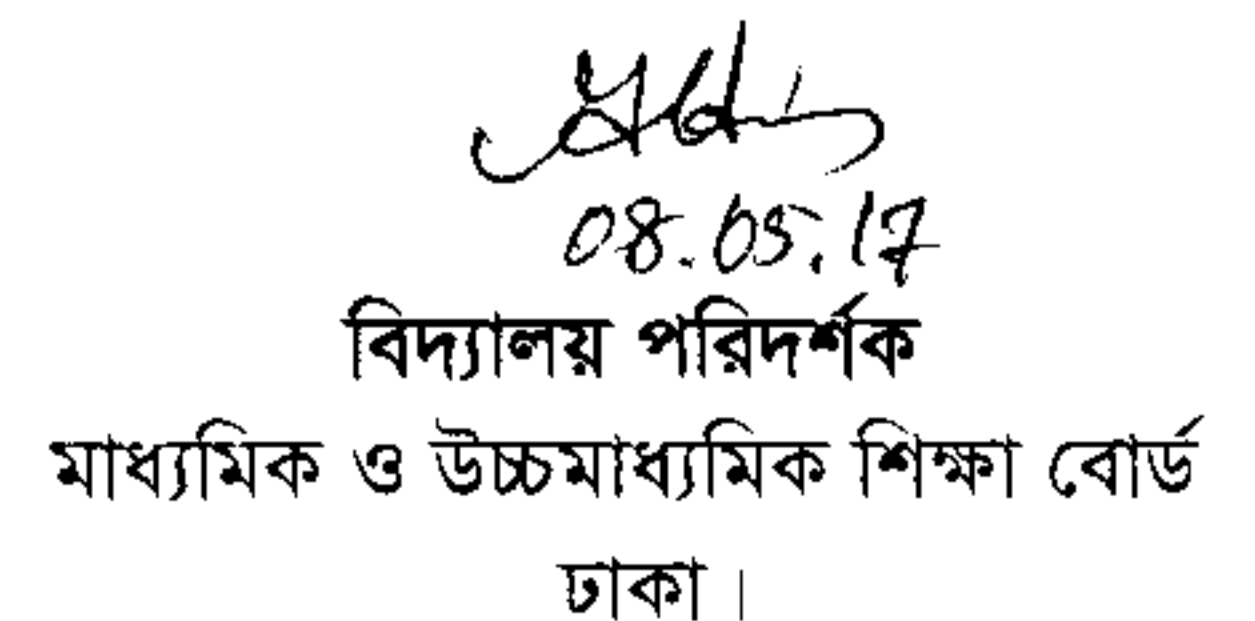 08.05.17
বিদ্যালয় পরিদর্শক
মাধ্যমিক ও উচ্চমাধ্যমিক শিক্ষা বোর্ড
ঢাকা।